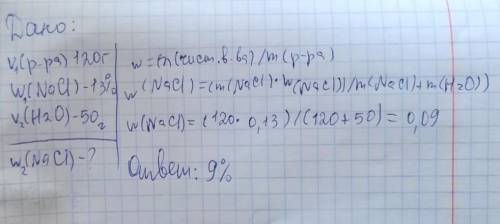 Дано:
V₁(р-ра) 120г
W₁(NaCl)-13%
V₂(H2O)-50г
W₂(NaCl)-?
w=m(чист.в.ва)/m(р-ра)
w(NaCl)=(m(NaCl)·W(NaCl))/m(NaCl)+m(H2O))
w(NaCl)=(120·0,13)/(120+50)=0,09
Ответ: 9%